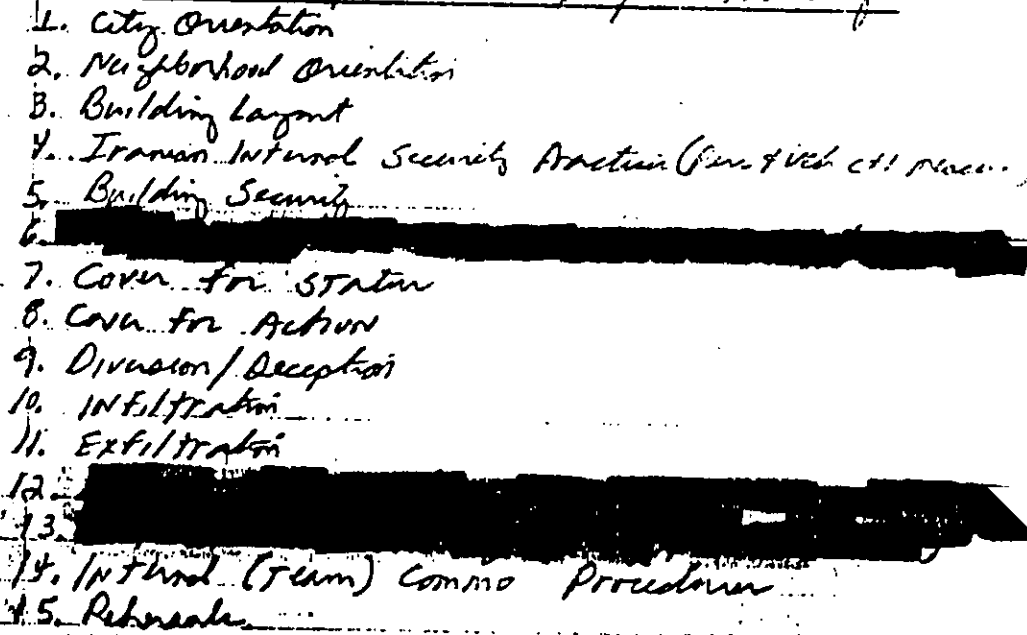 1. City Orientation
2. Neighborhood Orientation
3. Building Layout
4. Iranian Internal Security Practices (Pers & Veh
5. Building Security
6.
7. Cover for Status
8. Cover for Action
9. Diversion / Deception
10. Infiltration
11. Exfiltration
12.
13.
14. Internal (Team) Commo Procedures
15. Rehearsals